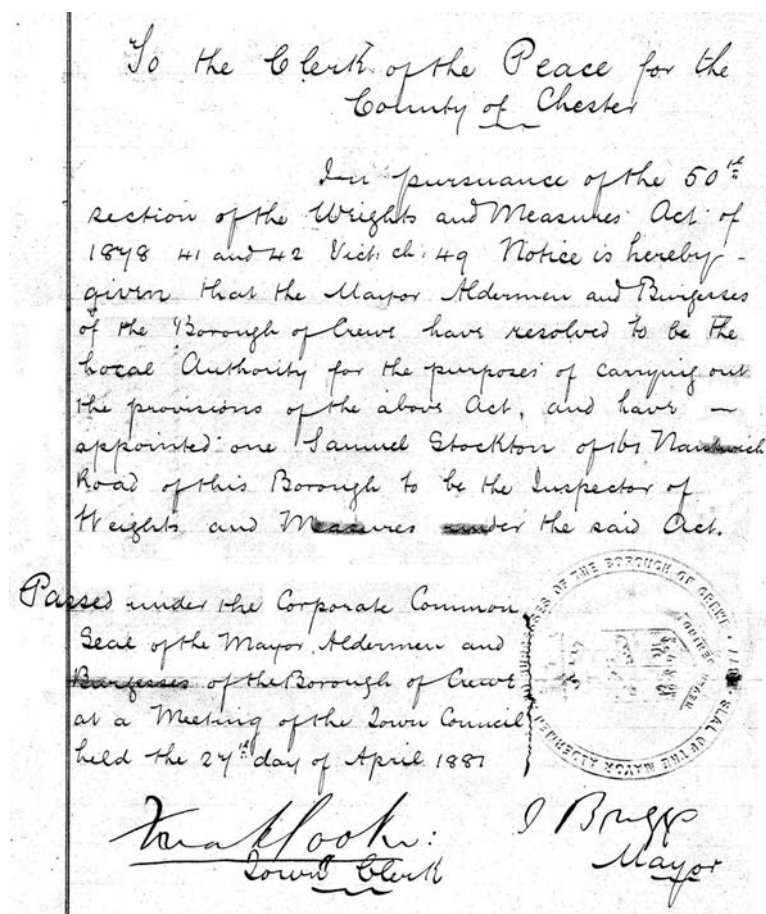 To the Clerk of the Peace for the
County of Chester
In pursuance of the 50th
section of the Weights and Measures Act of
1878 41 and 42 Vict: ch: 49 Notice is hereby -
given that the Mayor Aldermen and Burgesses
of the Borough of Crewe have resolved to be the
Local Authority for the purposes of carrying out
the provisions of the above Act, and have —
appointed one Samuel Stockton of 161 Nantwich
Road of this Borough to be the Inspector of
Weights and Measures under the said Act.
Passed under the Corporate Common
Seal of the Mayor Aldermen and
Burgesses of the Borough of Crewe
at a Meeting of the Town Council
held the 27th day of April 1881
SEAL OF THE MAYOR ALDERMEN BURGESSES OF THE BOROUGH OF CREWE
Town Clerk
Briggs
Mayor